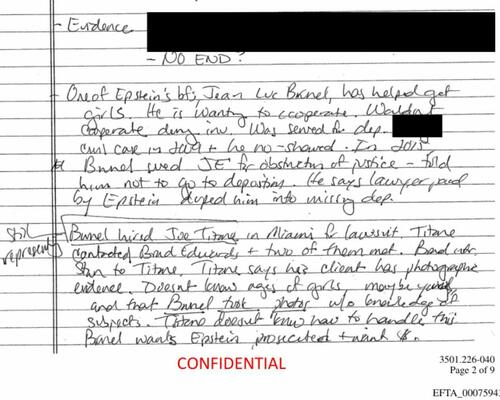 - Evidence
- NO END?
- One of Epstein's bfs, Jean Luc Brunel, has helped get
girls. He is wanting to cooperate. Wouldn't
cooperate during inv. Was served for dep.
civil case in 2009 + he no-showed. In 2015,
Brunel sued JE for obstruction of justice - told
him not to go to deposition. He says lawyer paid
by Epstein him into missing dep.
still represent
Brunel hired Joe Titone in Miami for lawsuit. Titone
contacted Brad Edwards + two of them met. Brad
Stan to Titone. Titone says his client has photographic
evidence. Doesn't know ages of girls, maybe
and that Brunel took photos w/o knowledge of
subjects. Titone doesn't know how to handle this
Brunel wants Epstein prosecuted + want $.
CONFIDENTIAL
3501.226-040
Page 2 of 9
EFTA_0007594